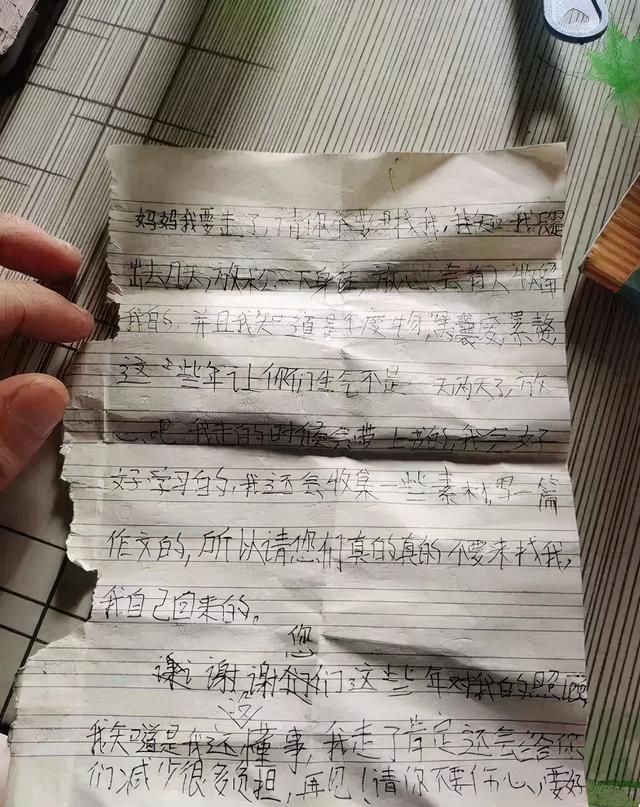 妈妈我要走了,请你不要找我,我知 我只是
出去几天,放松一下身 ,放心,会有人收留
我自的,并且我知道是 废 累赘
这些年让你们生气不是一天两天了,放
心吧,我走的时候会带上 的,我会好
好学习的,我还会收集一些素材,写一篇
作文的,所以请您们真的真的不要来找我,
我自己回来的。
您
谢谢谢 们这些年对我的照顾
没
我知道是我还懂事,我走了肯定还会给你
们减少很多负担,再见!请你不要伤心,要好